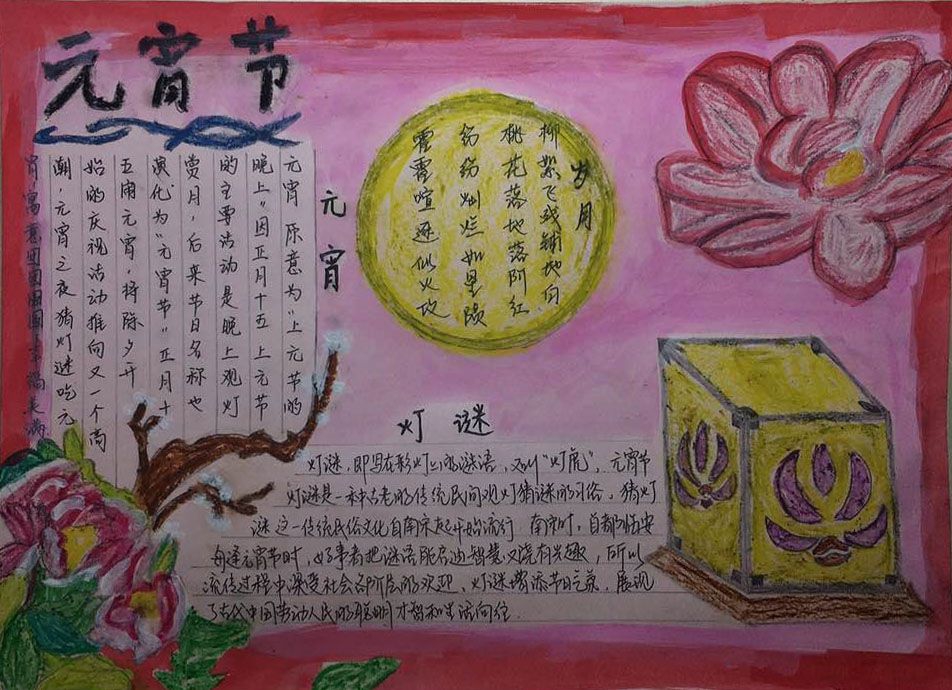 元宵节
元宵
元宵原意为"上元节的
晚上"因正月十五上元节
的主要活动是晚上观灯
赏月，后来节日名称也
演化为"元宵节"正月十
五闹元宵，将除夕开
始的庆祝活动推向又一个高
潮，元宵之夜猜灯谜吃元
宵寓意团团圆圆幸福美满
岁月
柳絮飞残铺地白
桃花落地落阶红
纷纷灿烂如星陨
霍霍喧逐似火攻
灯谜
灯谜，即写在彩灯上的谜语，又叫"灯虎"，元宵节
灯谜是一种古老的传统民间观灯猜谜的习俗，猜灯
谜这一传统民俗文化自南宋起开始流行 南宋时，首都临安
每逢元宵节时，好事者把谜语 启迪智慧又饶有兴趣，所以
流传过程中深受社会各阶层的欢迎，灯谜增添节日气氛，展现
了古代中国劳动人民的聪明才智和生活向往.